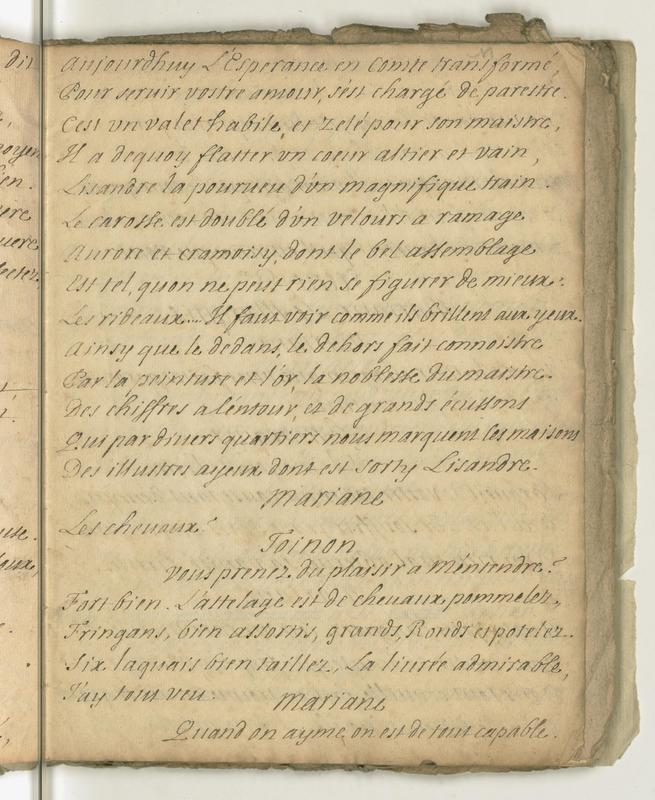 Aujourdhuy L'Esperance en comte transformé
Pour seruir vostre amour, s'est chargé de parestre.
C'est vn valet habile, et zelé pour son maistre,
Il a dequoy flatter vn coeur altier et vain,
Lisandre la pourueu d'vn magnifique train.
Le carosse est doublé d'vn velours a ramage
Aurore et cramoisy, dont le bel assemblage
Est tel, quon ne peut rien se figurer de mieux.
Les rideaux.... Il faut voir comme ils brillent aux yeux.
Ainsy que le dedans, le dehors fait connoistre
Par la peinture et l'or, la noblesse du maistre.
Des chiffres a l'éntour, et de grands écussons
Qui par diuers quartiers nous marquent les maisons
Des illustres ayeux dont est sorty Lisandre.
Mariane
Les cheuaux?
Toinon
vous prenez du plaisir a m'éntendre?
Fort bien. L'attelage est de cheuaux pommelez,
Fringans, bien assortis, grands, Ronds et potelez.
Six laquais bien taillez, La liurée admirable,
J'ay tout veu.
Mariane
Quand on ayme, on est de tout capable.